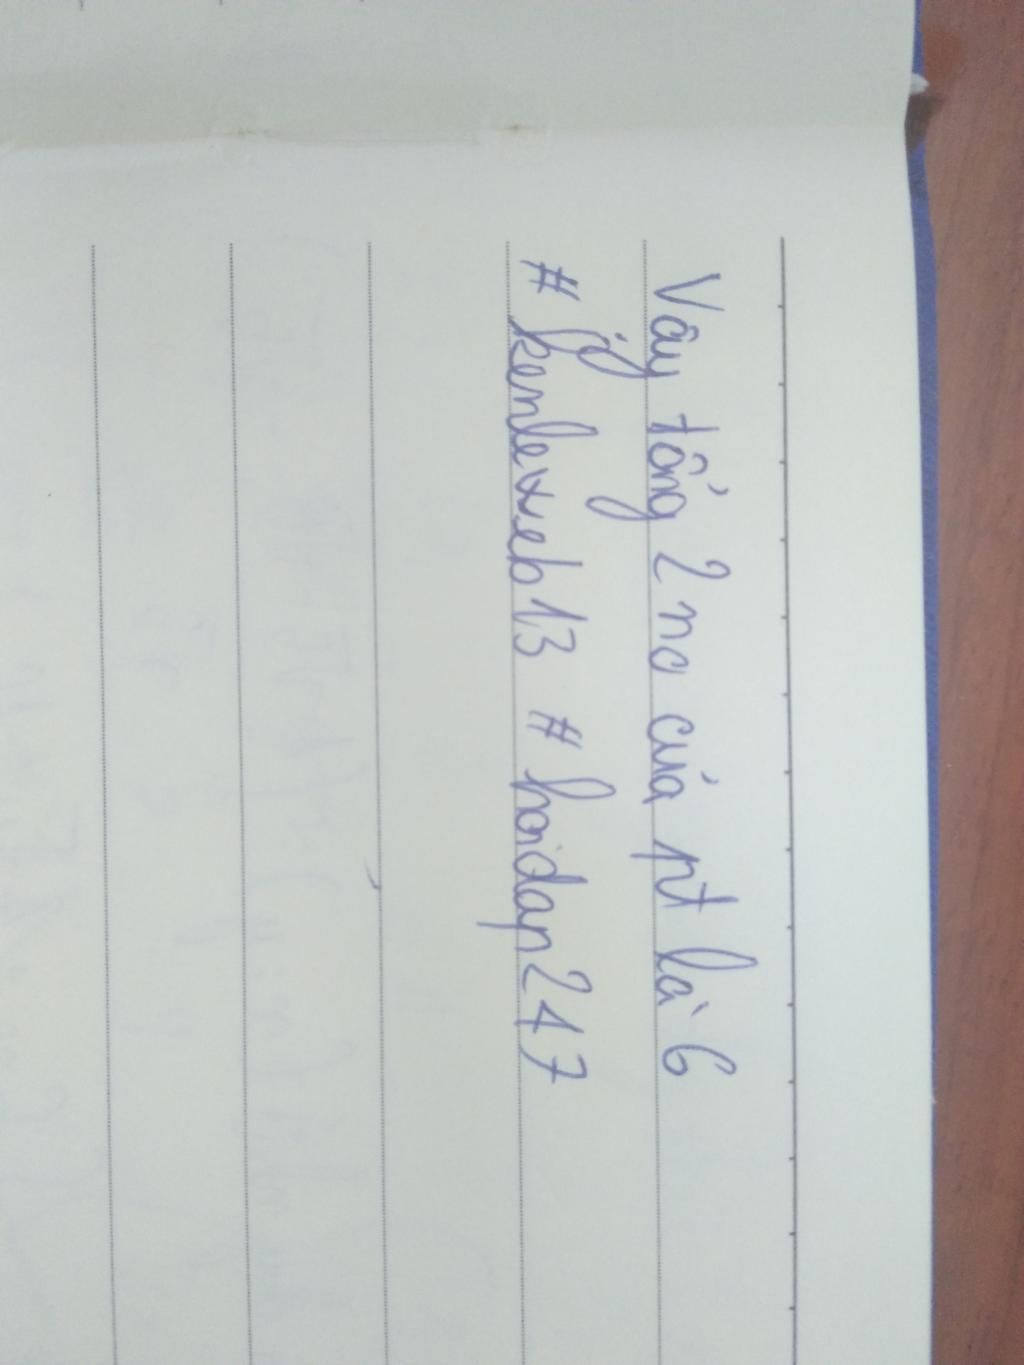 Vậy tổng 2 no của pt là 6
# kenlexeb13 # hoidap247